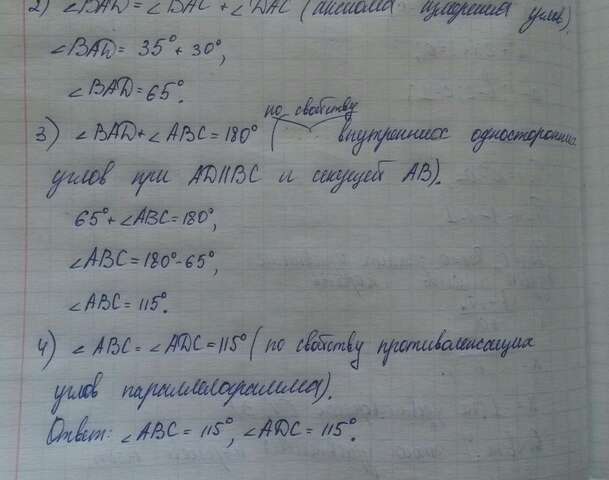 2) ∠BAD = ∠BAC + ∠DAC (аксиома измерения углов).
∠BAD = 35° + 30°,
∠BAD = 65°.
по свойству
3) ∠BAD + ∠ABC = 180° ( внутренних односторонних
углов при AD||BC и секущей AB).
65° + ∠ABC = 180°,
∠ABC = 180° - 65°,
∠ABC = 115°.
4) ∠ABC = ∠ADC = 115° (по свойству противолежащих
углов параллелограмма).
Ответ: ∠ABC = 115°, ∠ADC = 115°.